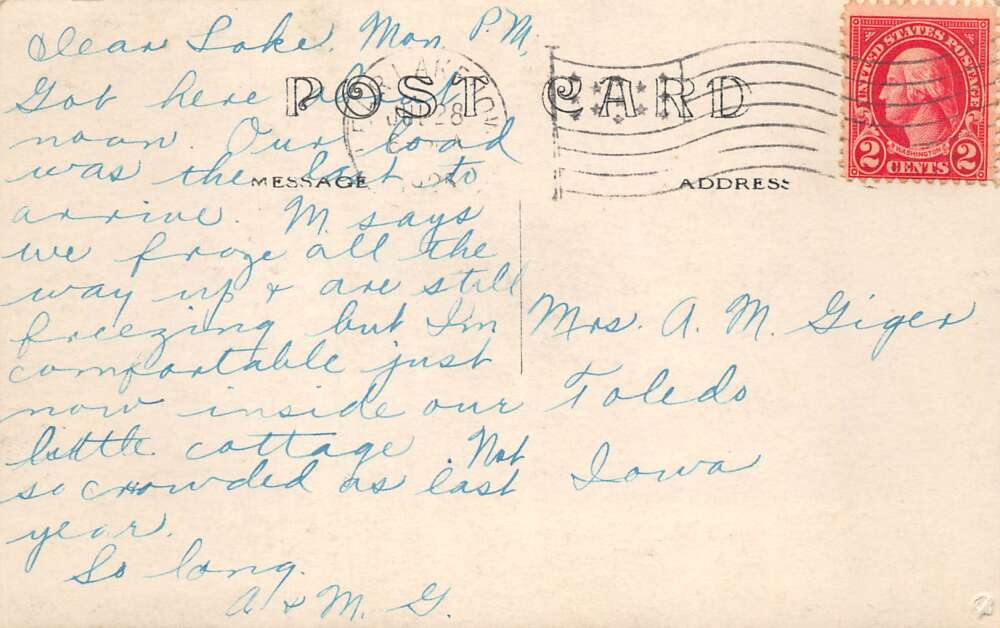 Clear Lake. Mon. P.M.
POST CARD
Got here about
noon. Our load
was the last to
MESSAGE
arrive. M. says
we froze all the
way up & are still
freezing but I'm
comfortable just
now inside our
little cottage. Not
so crowded as last
year.
So long.
A & M. G.
CLEAR LAKE, IOWA
JUN 28
ADDRESS
Mrs. A. M. Giger
Toledo
Iowa
UNITED STATES POSTAGE
WASHINGTON
2 CENTS 2